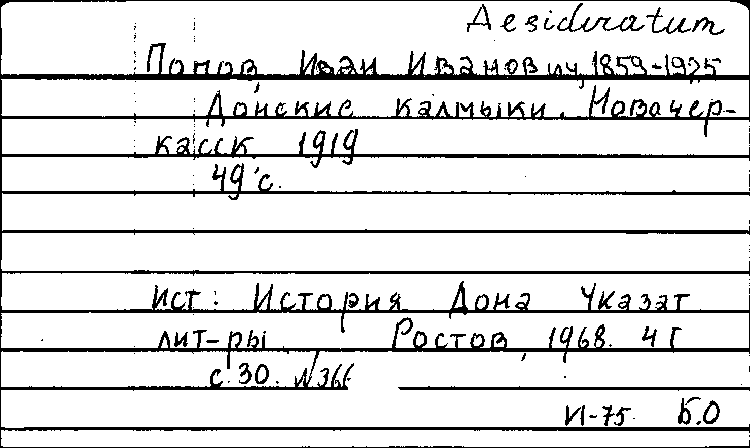 Desideratum
Попов, Иван Иванович, 1859-1925
Донские калмыки. Новочер-
касск 1919
49 с.
Ист: История Дона Указат
лит-ры. Ростов, 1968. Ч I
с.30. №366
И-75 Б.О